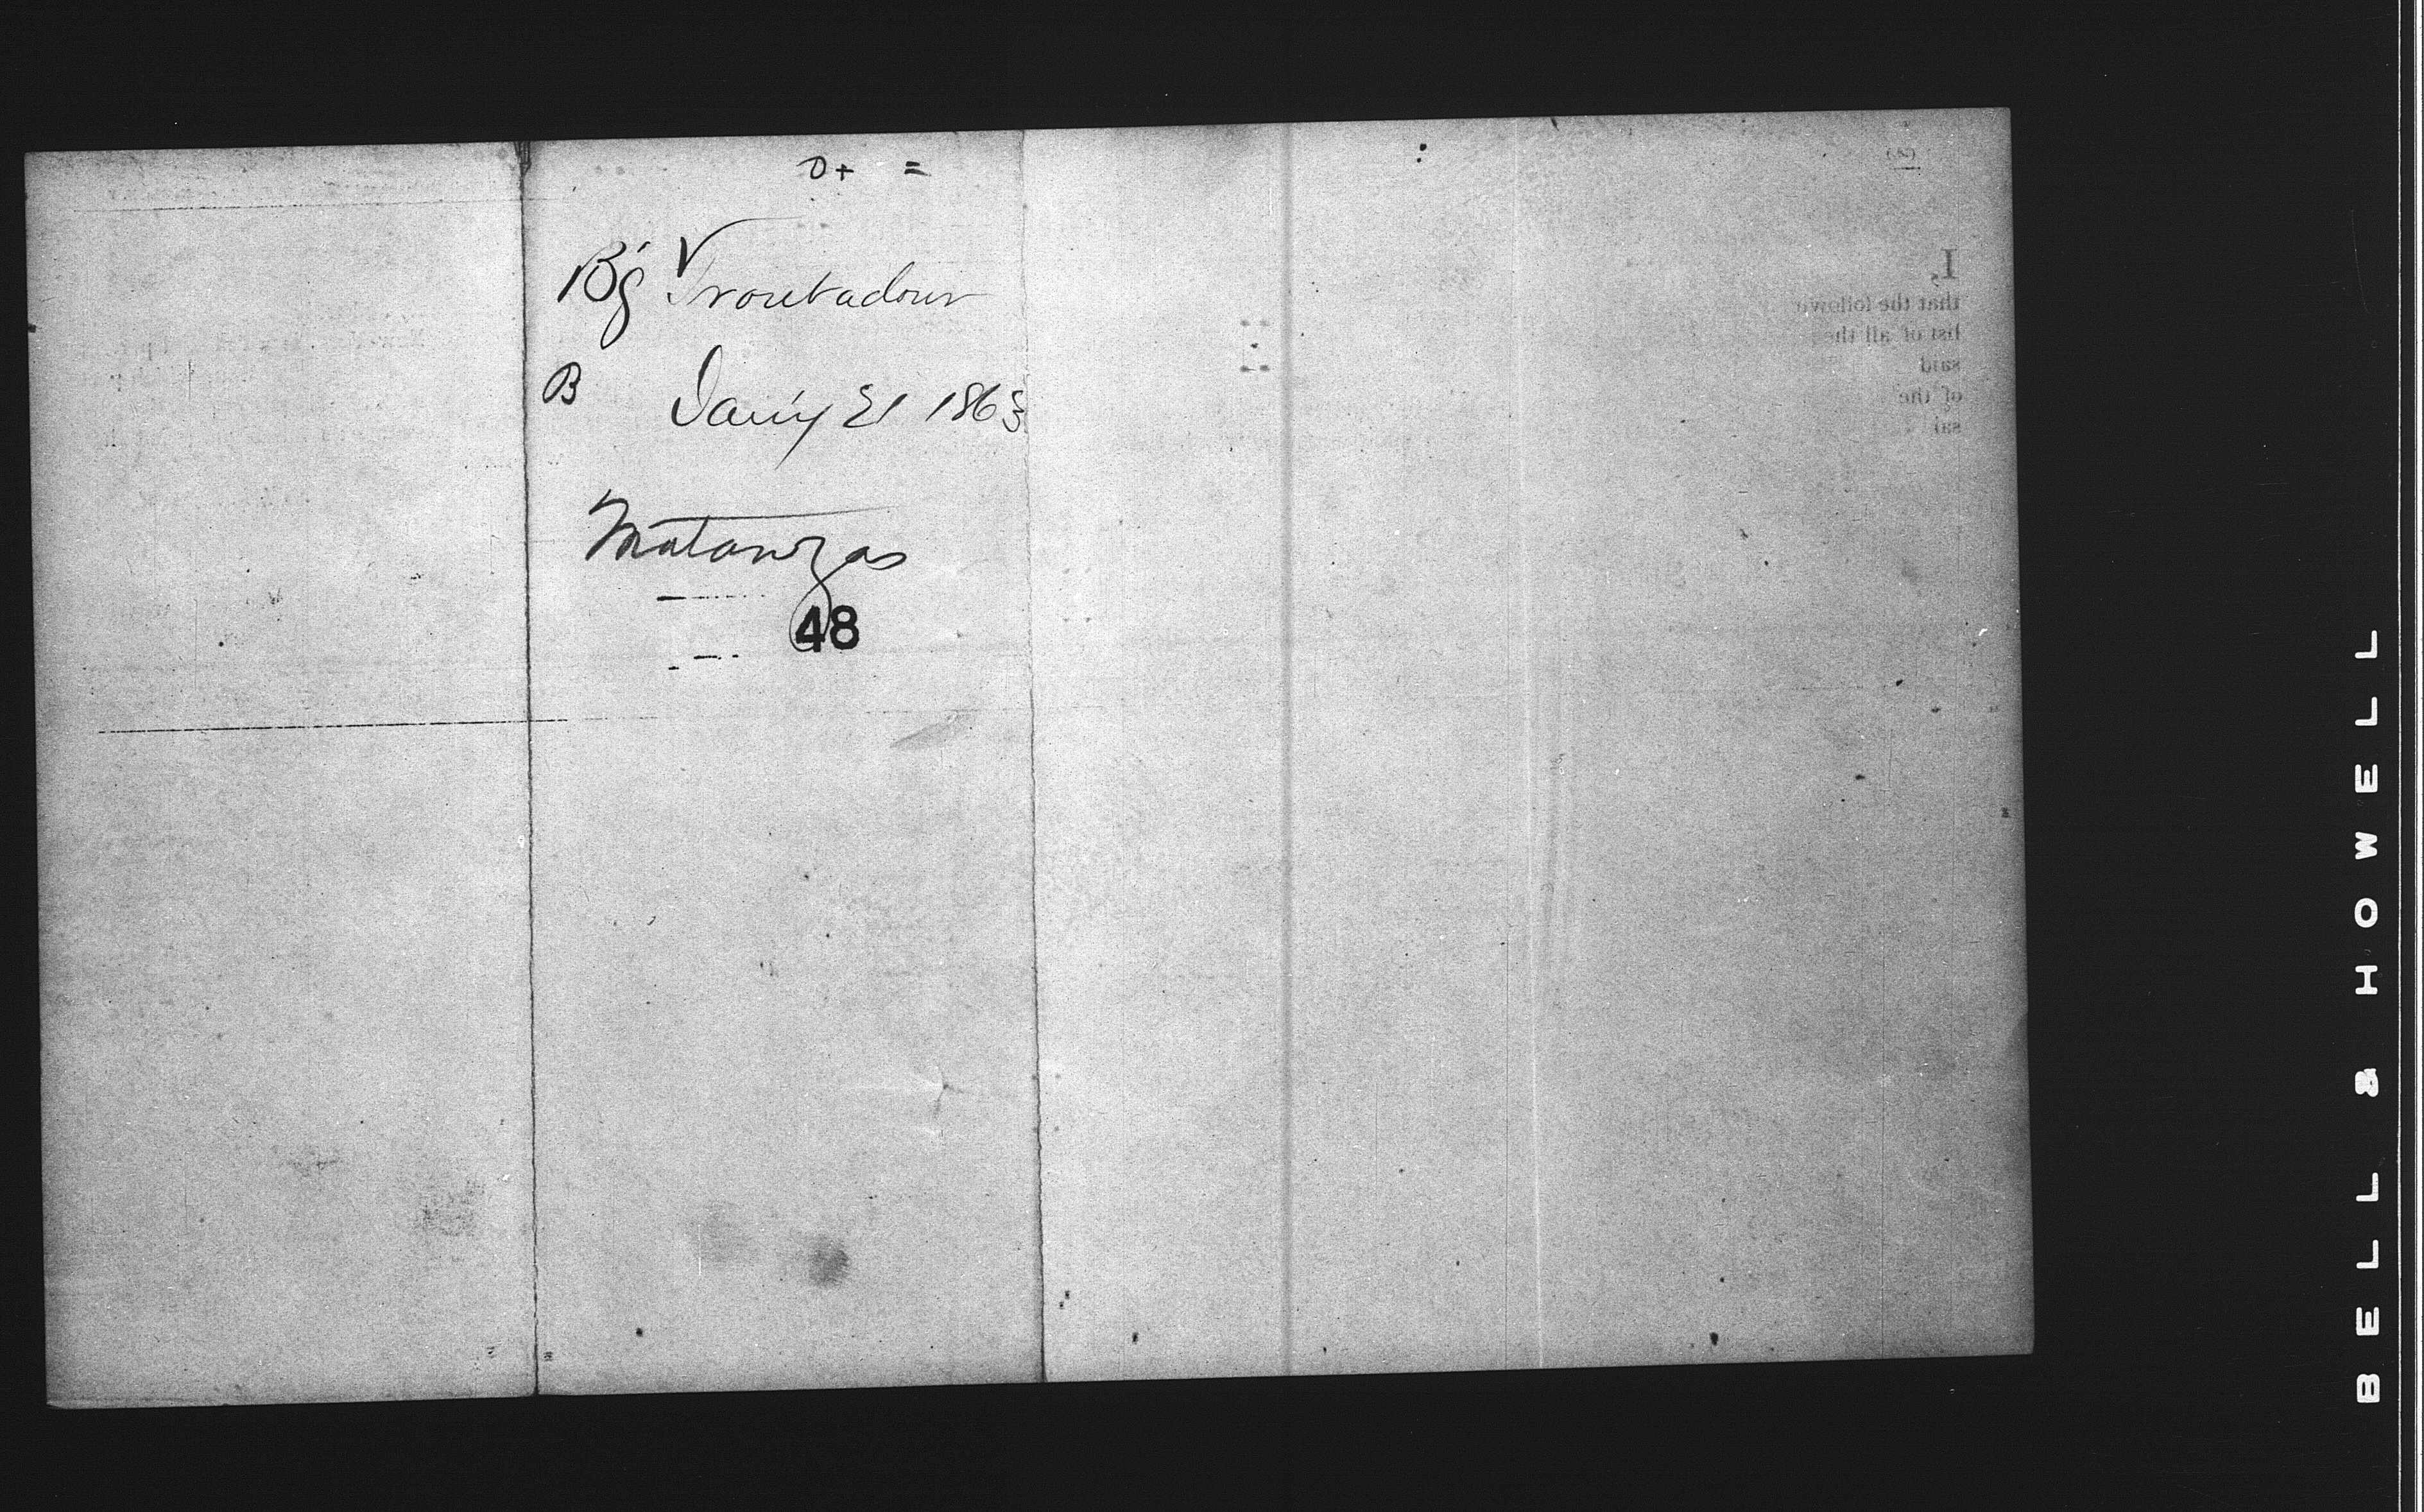 O+ =
Bg Troubadour
B Jan'y 21 1863
Matanzas
48
I,
that the followi
list of all the
said
of the
sai
BELL & HOWELL